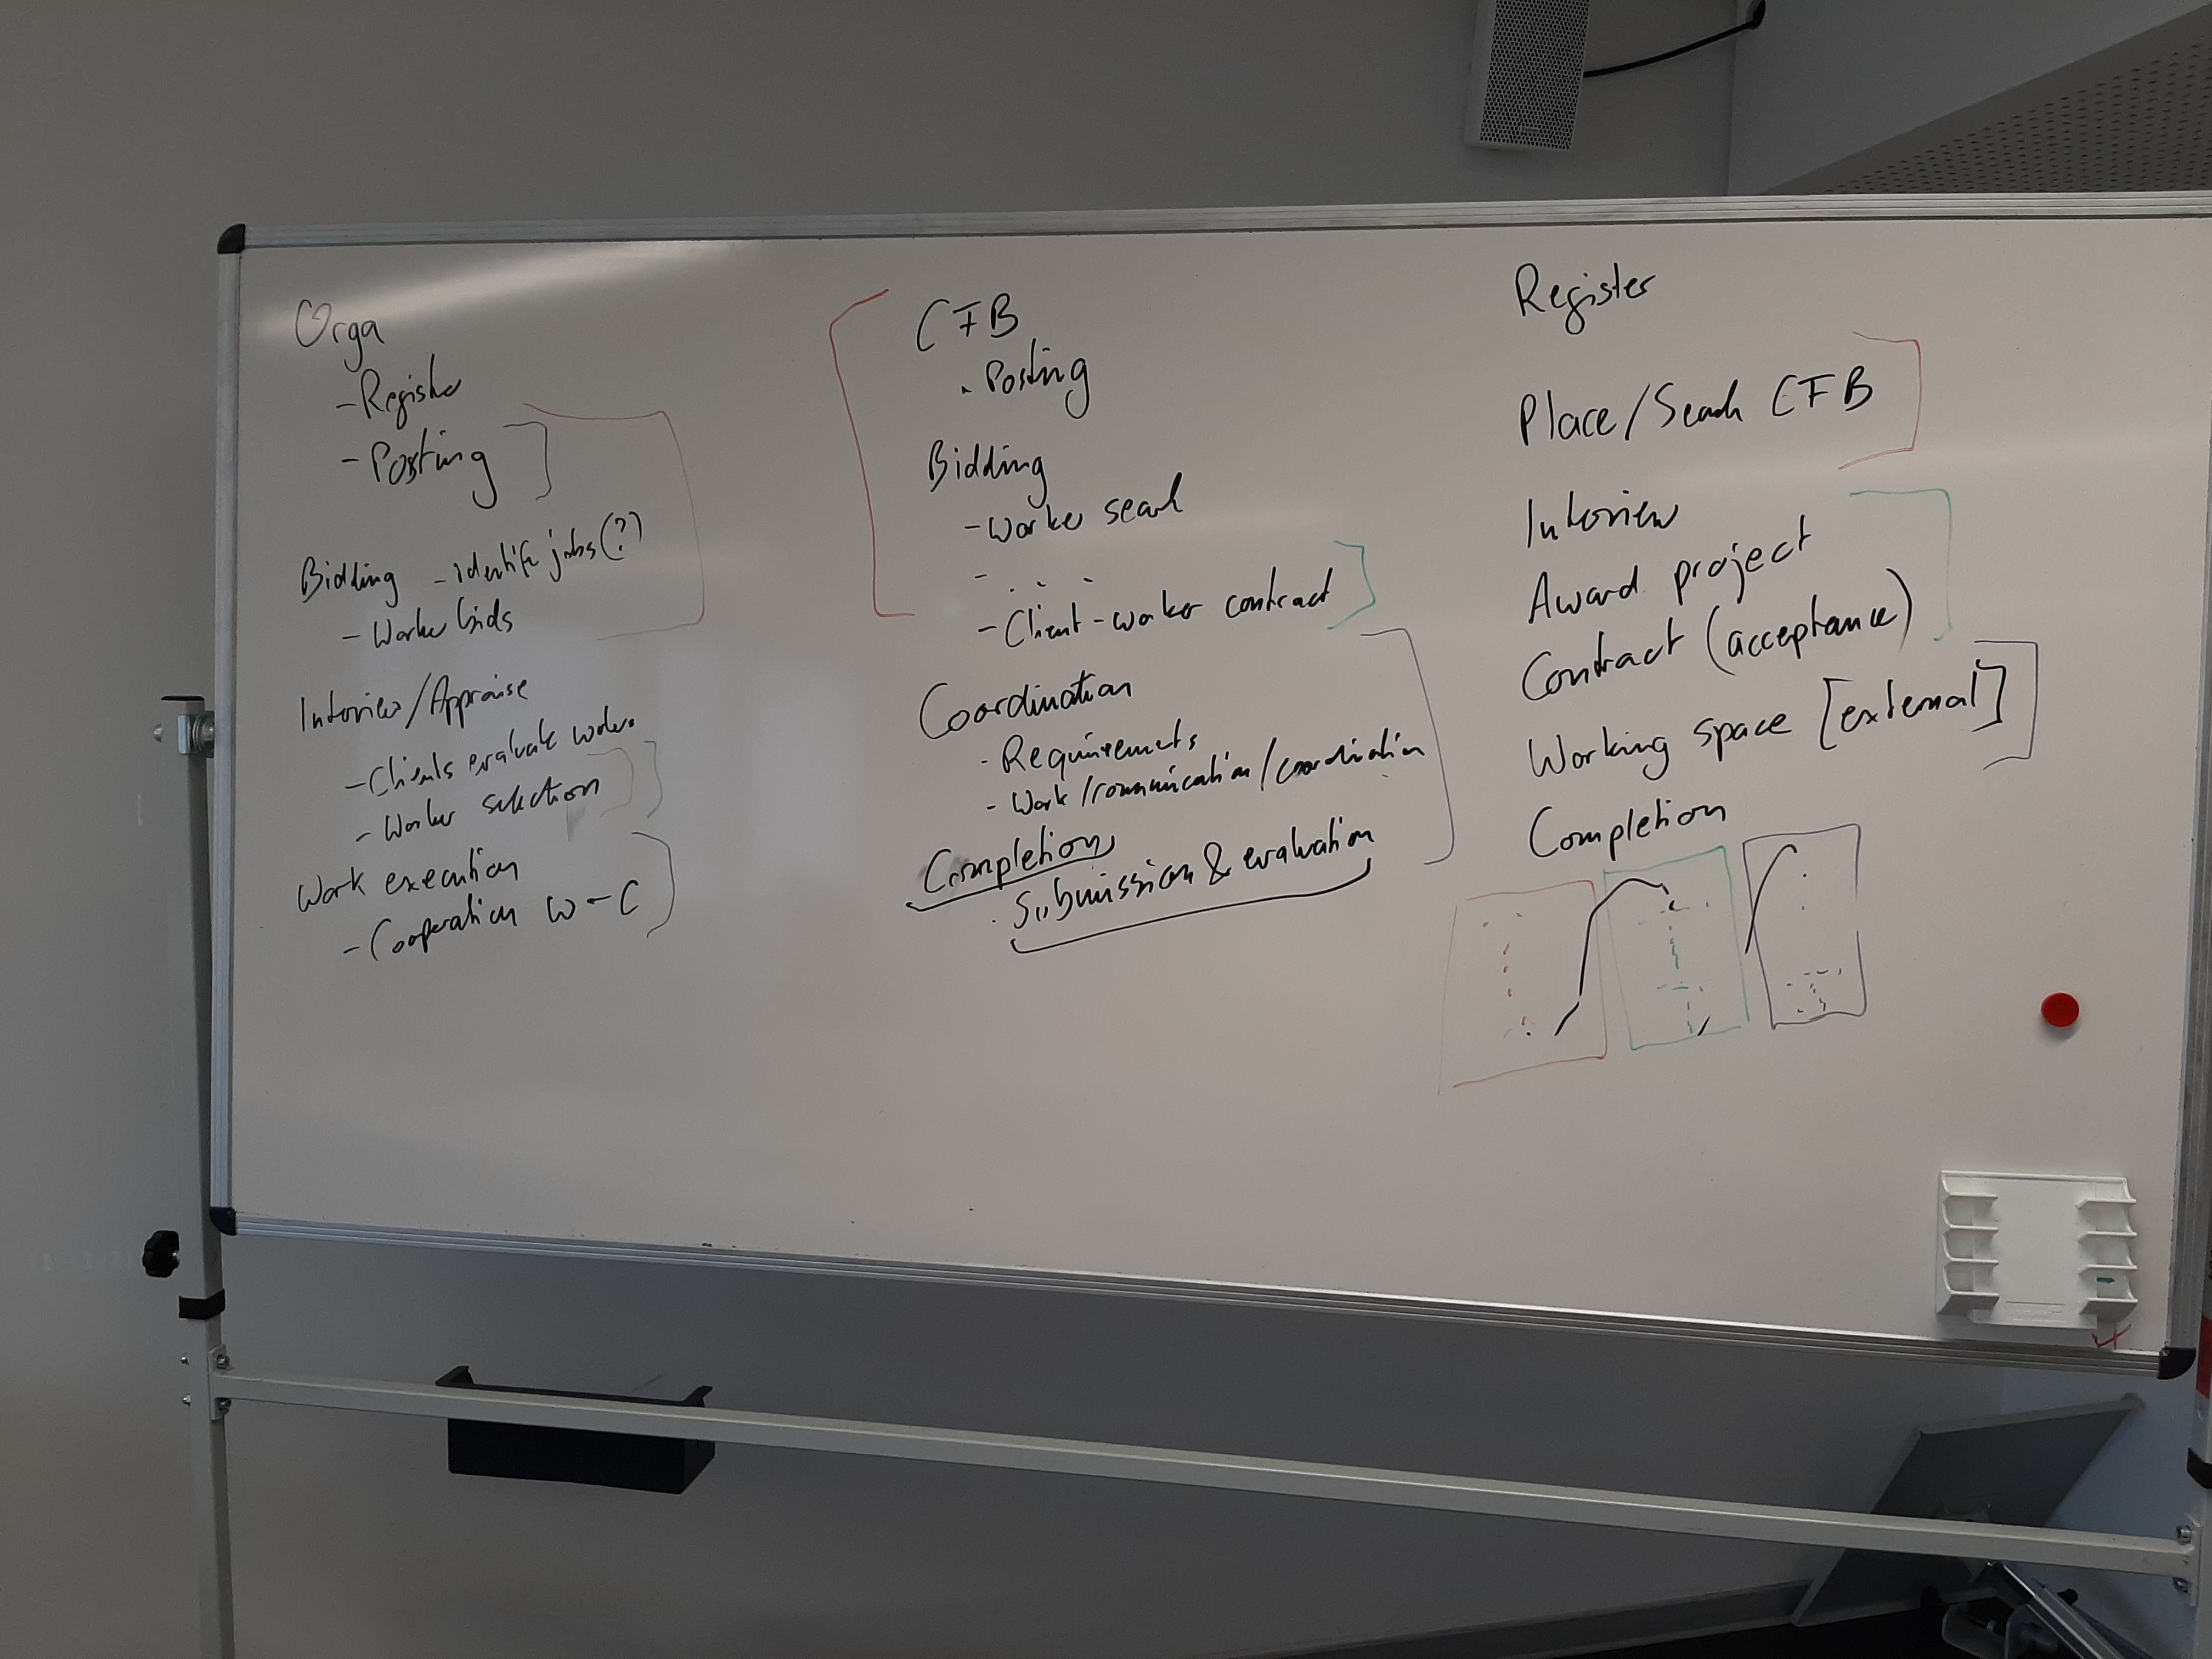 Orga
- Register
- Posting
Bidding - identify jobs (?)
- Worker bids
Interview/Appraise
- Clients evaluate workers
- Worker selection
Work execution
- Cooperation W - C
CFB
- Posting
Bidding
- Worker search
- . . .
- Client - worker contract
Coordination
- Requirements
- Work/communication/coordination
Completion
- Submission & evaluation
Register
Place/Search CFB
Interview
Award project
Contract (acceptance)
Working space [external]
Completion